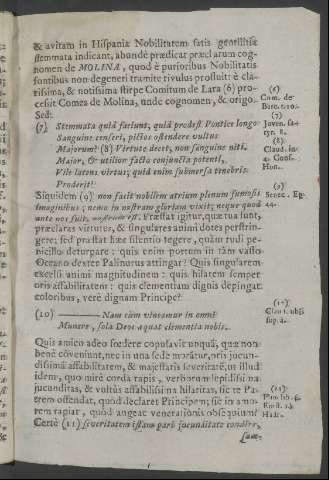 & avitam in Hispania Nobilitatem satis gentilitia
stemmata indicant, abundè prædicat præclarum cog-
nomen de MOLINA, quod è purioribus Nobilitatis
fontibus non degeneri tramite rivulus profluit: è cla-
rissima, & notissima stirpe Comitum de Lara (6) pro-
cessit Comes de Molina, unde cognomen, & origo.
Sed:
(7) Stemmata quid faciunt, quid prodest Pontice longo
Sanguine censeri, pictos ostendere vultus
Majorum? (8) Virtute decet, non sanguine niti.
Major, & utilior facto conjuncta potenti,
Vile latens virtus; quid enim submersa tenebris
Proderit?
Siquidem (9) non facit nobilem atrium plenum fumosis
imaginibus; nemo in nostram gloriam vixit; neque quod
ante nos fuit, nostrum est. Præstat igitur, quæ tua sunt,
præclaras virtutes, & singulares animi dotes perstrin-
gere; sed præstat hæc silentio tegere, quàm rudi pe-
nicillo deturpare: quis enim portum in tàm vasto
Oceano dexter Palinurus attingat? Quis singularem
excelsi animi magnitudinem: quis hilarem semper
oris affabilitatem: quis clementiam dignis depingat
coloribus, verè dignam Principe?
(10) ——— Nam cùm vincamur in omni
Munere, sola Deos æquat clementia nobis.
Quis amico adeo fœdere copulavit unquã, quæ non
benè cõveniunt, nec in una sede morãtur, oris jucun-
dissimã affabilitatem, & majestatis severitatẽ, ut illud
idem, quo mirè corda rapis, verborum lepidissima
jucunditas, & vultûs affabilissima hilaritas, sic te Pa-
trem ostendat, quòd declaret Principem; sic in amo-
rem rapiat, quòd augeat venerationis obsequium?
Certè (11) severitatem istam pari jucunditate condire,
sum-
(6)
(7)
Juven. sa-
tyr. 8.
(8)
Claud. in
4. Cons.
Hon.
(9)
Senec. Ep.
44.
(10)
Claud. ubi
sup.
(11)
Plin. lib. 4.